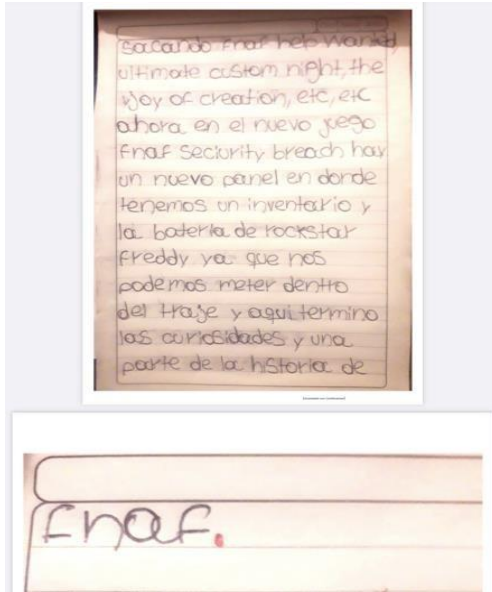 sacando fnaf help wanted,
ultimate custom night, the
joy of creation, etc, etc
ahora en el nuevo juego
fnaf seciurity breach hay
un nuevo panel en donde
tenemos un inventario y
la bateria de rockstar
freddy ya que nos
podemos meter dentro
del traje y aqui termino
las curiosidades y una
parte de la historia de
fnaf.